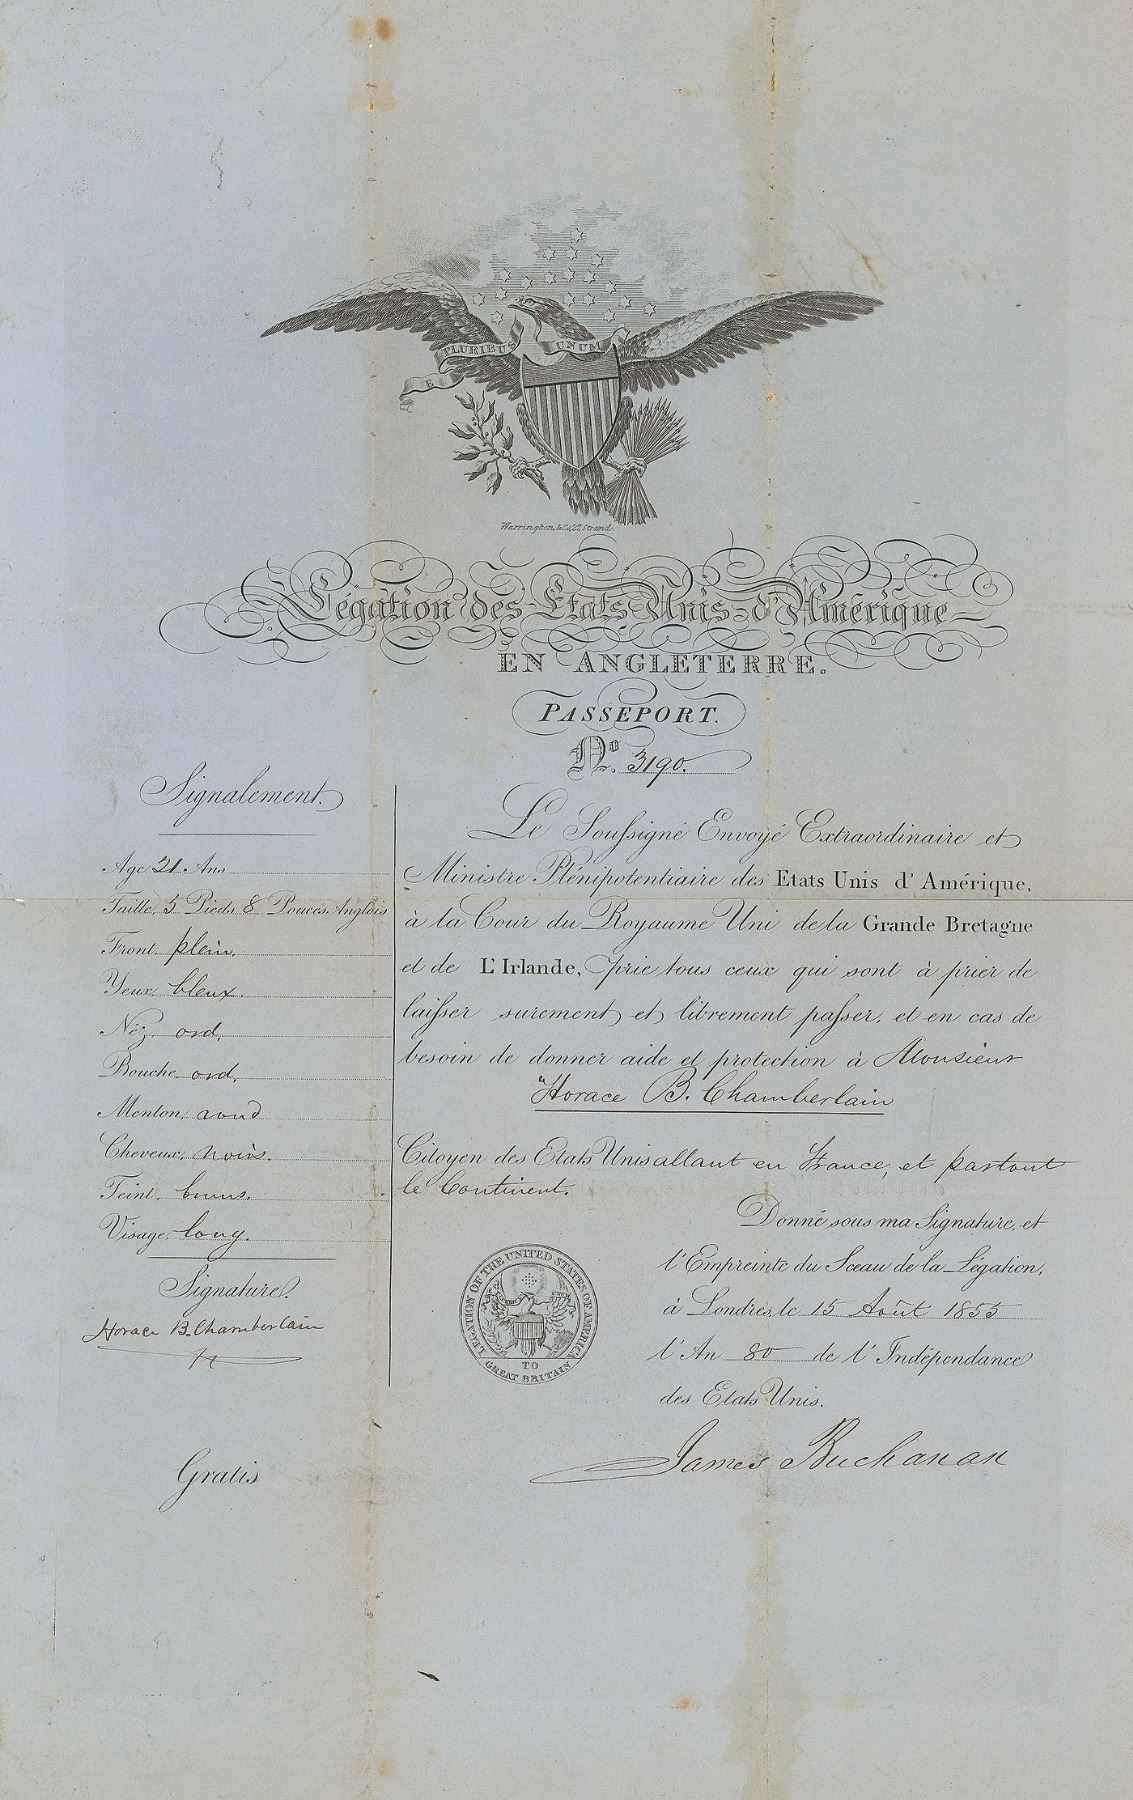 E PLURIBUS UNUM
Warrington & Co, 27, Strand.
Légation des Etats-Unis-d'Amérique
EN ANGLETERRE.
PASSEPORT.
No. 3190.
Signalement.
Age 21 Ans
Taille, 5 Pieds 8 Pouces Anglois
Front. plein.
Yeux, bleux.
Nez, ord.
Bouche, ord.
Menton, rond
Cheveux, noirs.
Teint, bruns.
Visage, long.
Signature.
Horace B. Chamberlain
Gratis
Le Soussigné Envoyé Extraordinaire et
Ministre Plénipotentiaire des Etats Unis d'Amérique,
à la Cour du Royaume Uni de la Grande Bretagne
et de L'Irlande, prie tous ceux qui sont à prier de
laisser surement et librement passer, et en cas de
besoin de donner aide et protection à Monsieur
Horace B. Chamberlain
Citoyen des Etats Unis allant en France, et partout
le Continent.
Donné sous ma Signature, et
l'Empreinte du Sceau de la Légation,
à Londres, le 15 Août 1855
l'An 80 de l'Indépendance
des Etats Unis.
LEGATION OF THE UNITED STATES OF AMERICA
TO
GREAT BRITAIN
James Buchanan